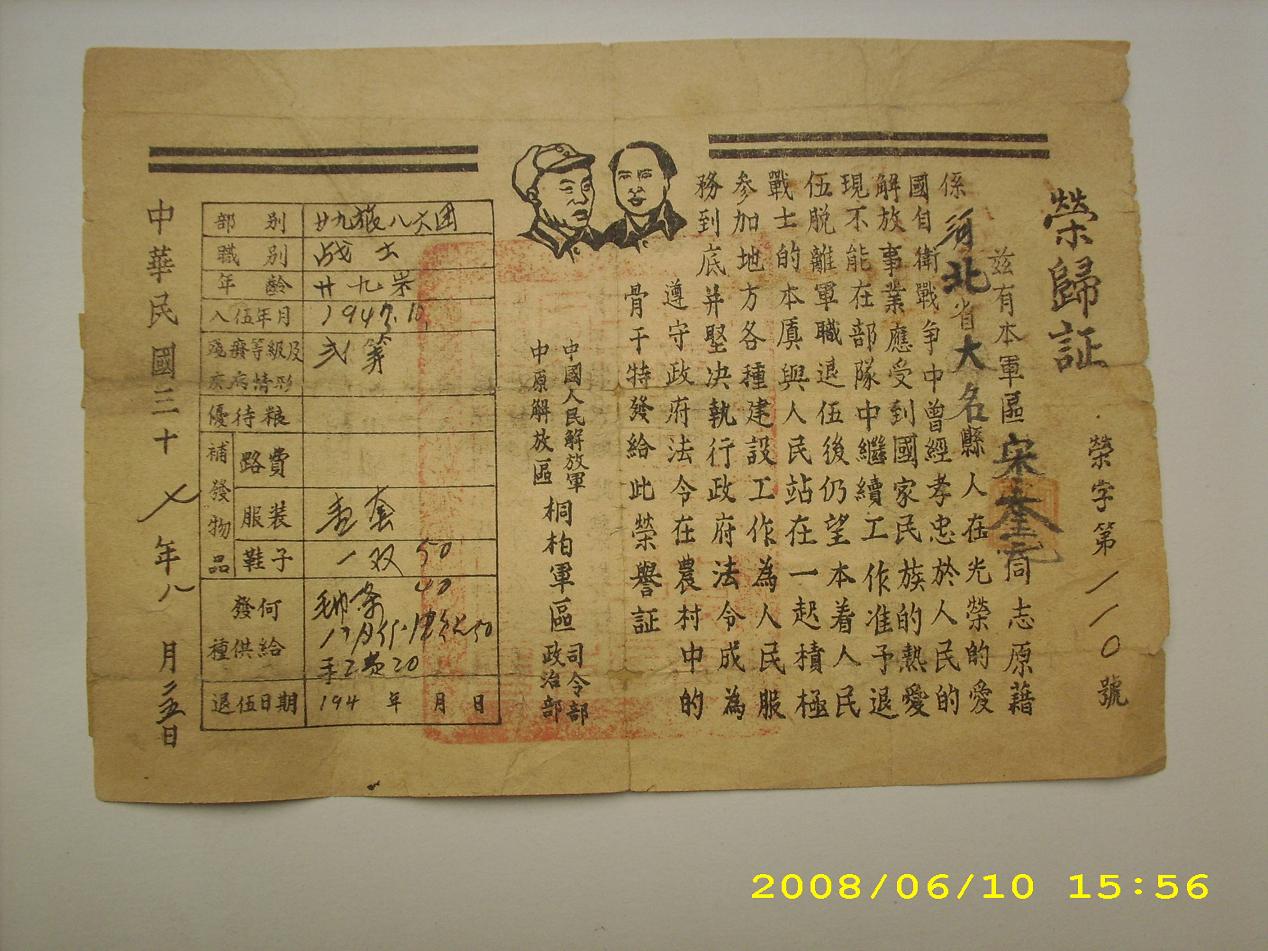 榮歸証
榮字第一一○號
兹有本軍區宋奎元同志原藉
係河北省大名縣人在光榮的愛
國自衛戰争中曾經孝忠於人民的
解放事業應受到國家民族的熱愛
現不能在部隊中繼續工作准予退
伍脱離軍職退伍後仍望本着人民
戰士的本質與人民站在一起積極
参加地方各種建設工作為人民服
務到底并堅决執行政府法令成為
遵守政府法令在農村中的
骨干特發給此榮譽証
中國人民解放軍
中原解放區
桐柏軍區
司令部
政治部
部别 廿九旅八六团
職别 战士
年齡 廿九岁
入伍年月 1947.10
殘廢等級及疾病情形 弍等
優待粮
補發物品
路費
服裝 壹套
鞋子 一双 50
發給何種供給 40
手工费20
退伍日期 194 年 月 日
中華民國三十七年八月二五日
2008/06/10 15:56